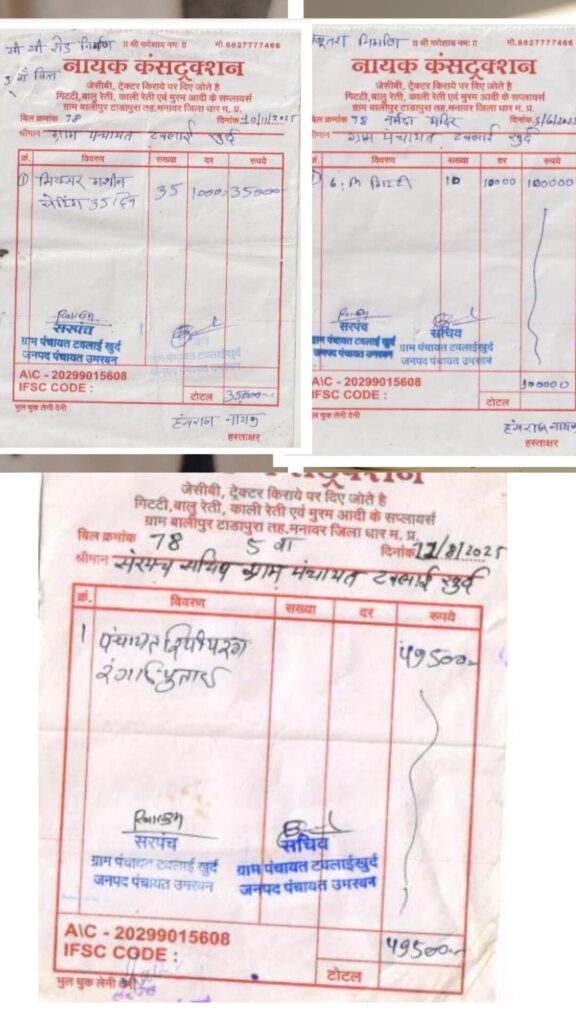 सी सी रोड निर्माण ॥ श्री गणेशाय नमः ॥ मो.8827777466
नायक कंसट्रक्शन
जेसीबी, ट्रेक्टर किराये पर दिए जोते है
गिटटी,बालु रेती, काली रेती एवं मुरम आदी के सप्लायर्स
ग्राम बालीपुर टाडापुरा तह.मनावर जिला धार म. प्र.
बिल क्रमांक 78 दिनांक 10/11/2025
श्रीमान ग्राम पंचायत टवलाई खुर्द
क्रं. विवरण सख्या दर रुपये
① मिक्चर मशीन 35 1000- 35000
35 दिन
सरपंच
ग्राम पंचायत टवलाई खुर्द
जनपद पंचायत उमरबन
A\C - 20299015608
IFSC CODE :
टोटल 35000-
भुल चुक लेनी देनी
हंसराज नायक
हस्ताक्षर
निर्माण ॥ श्री गणेशाय नमः ॥ मो.8827777466
नायक कंसट्रक्शन
जेसीबी, ट्रेक्टर किराये पर दिए जोते है
गिटटी,बालु रेती, काली रेती एवं मुरम आदी के सप्लायर्स
ग्राम बालीपुर टाडापुरा तह.मनावर जिला धार म. प्र.
बिल क्रमांक 78 नर्मदा मंदिर दिनांक 5/6/2025
श्रीमान ग्राम पंचायत टवलाई खुर्द
विवरण सख्या दर रुपये
6 m गिटटी 10 10000 100000
सरपंच सचिव
ग्राम पंचायत टवलाई खुर्द ग्राम पंचायत टवलाईखुर्द
जनपद पंचायत उमरबन जनपद पंचायत उमरबन
A\C - 20299015608
IFSC CODE :
100000
टोटल
भुल चुक लेनी देनी
हंसराज नायक
हस्ताक्षर
जेसीबी, ट्रेक्टर किराये पर दिए जोते है
गिटटी,बालु रेती, काली रेती एवं मुरम आदी के सप्लायर्स
ग्राम बालीपुर टाडापुरा तह.मनावर जिला धार म. प्र.
बिल क्रमांक 78 5 वा दिनांक 12/8/2025
श्रीमान सरपंच सचिव ग्राम पंचायत टवलाई खुर्द
क्रं. विवरण सख्या दर रुपये
1 पंचायत 49500-
रंगाई पुताई
सरपंच सचिव
ग्राम पंचायत टवलाई खुर्द ग्राम पंचायत टवलाईखुर्द
जनपद पंचायत उमरबन जनपद पंचायत उमरबन
A\C - 20299015608
IFSC CODE :
49500-
टोटल
भुल चुक लेनी देनी